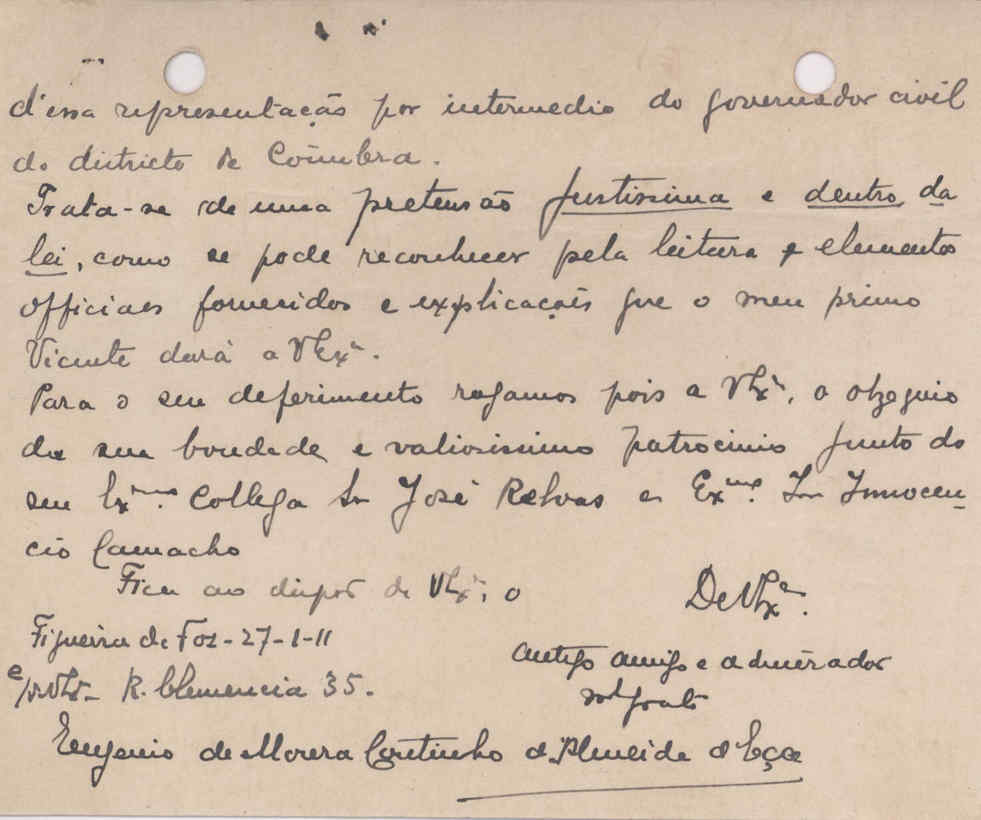 d'essa representação por intermedio do governador civil
do districto de Coimbra.
Trata-se de uma pretensão justissima e dentro da
lei, como se pode reconhecer pela leitura e elementos
officiaes fornecidos e explicações que o meu primo
Vicente dará a VExª.
Para o seu deferimento rogamos pois a VExª, o obzequio
da sua bondade e valiosissimo patrocinio junto do
seu Exmo. Collega Sr José Relvas e Exmo. Sr Innocen-
cio Camacho
Fica ao dispor de VExª, o
De VExª.
Figueira da Foz - 27-1-11
antigo amigo e admirador
R. Clemencia 35.
grato
Eugenio de Moura Coutinho d'Almeida d'Eça